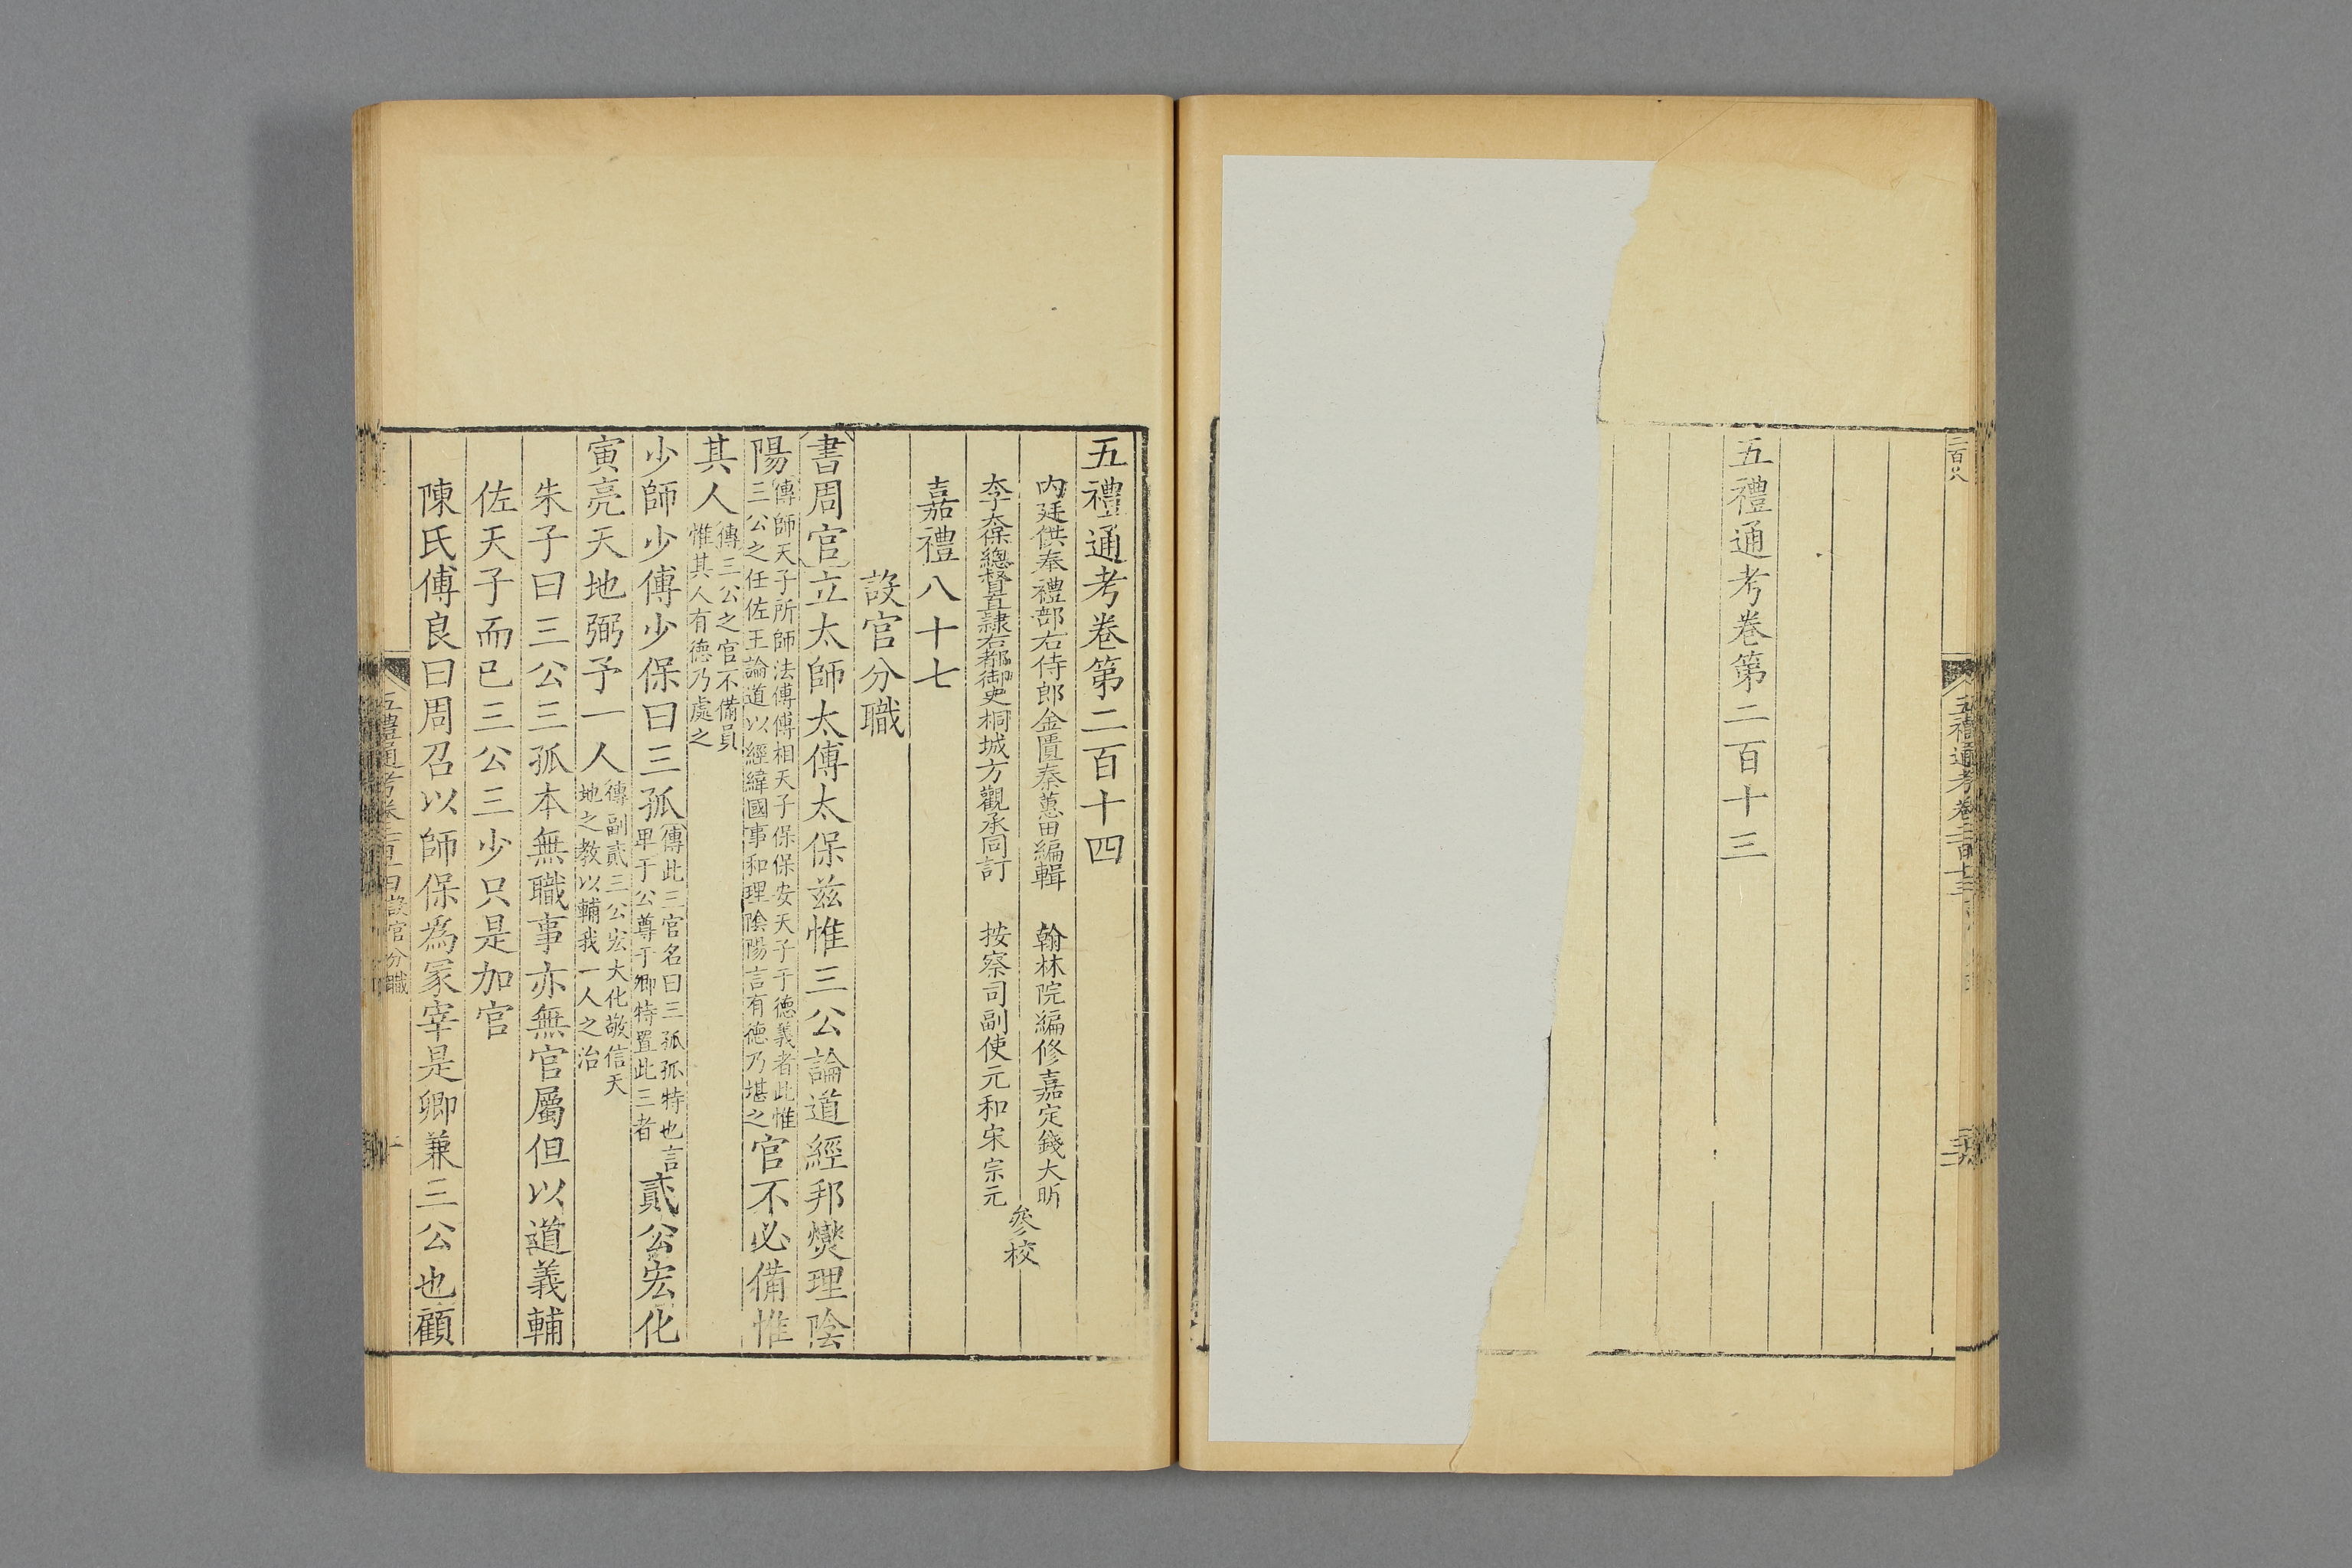 五禮通考卷第二百十三
五禮通考卷第二百十四
內廷供奉禮部右侍郎金匱秦蕙田編輯　翰林院編修嘉定錢大昕
太子太保總督直隸右都御史桐城方觀承同訂　按察司副使元和宋宗元
參校
嘉禮八十七
設官分職
書周官立太師太傅太保茲惟三公論道經邦燮理陰
陽傳師天子所師法傅傅相天子保保安天子于德義者此惟三公之任佐王論道以經緯國事和理陰陽言有德乃堪之官不必備惟
其人傳三公之官不備員惟其人有德乃處之
少師少傅少保曰三孤傳此三官名曰三孤孤特也言卑于公尊于卿特置此三者貳公宏化
寅亮天地弼予一人傳副貳三公宏大化敬信天地之教以輔我一人之治
朱子曰三公三孤本無職事亦無官屬但以道義輔
佐天子而已三公三少只是加官
陳氏傅良曰周召以師保爲冢宰是卿兼三公也顧